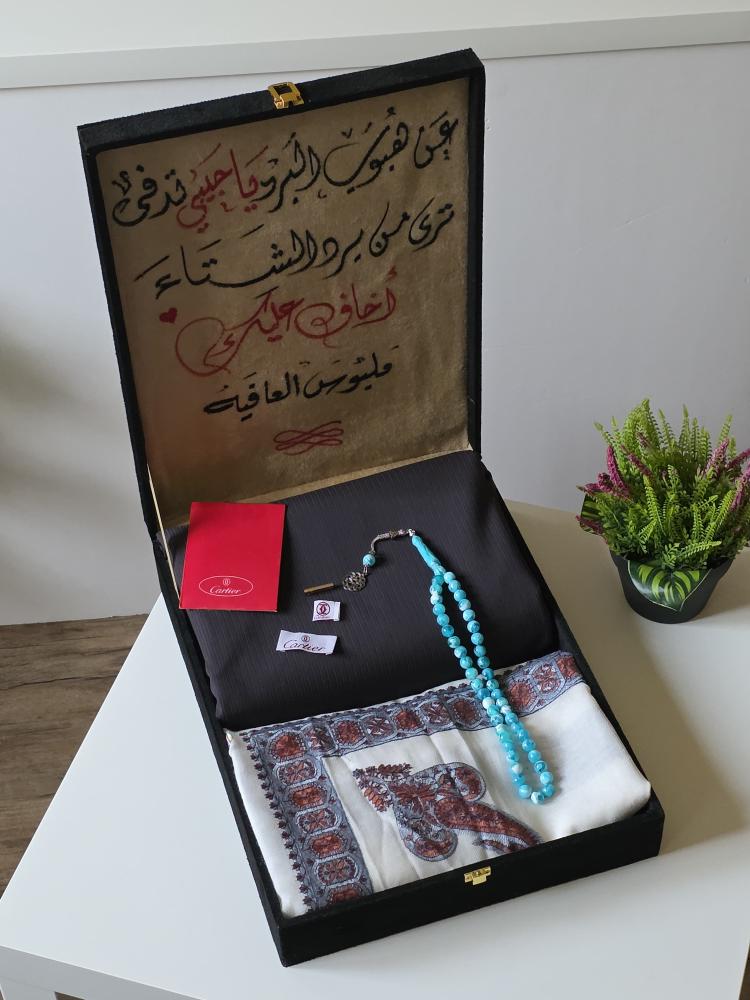 عن هبوب البرد يا حبيبي تدفى
ترى من برد الشتاء
أخاف عليك
ملبوس العافيه
Cartier
Cartier